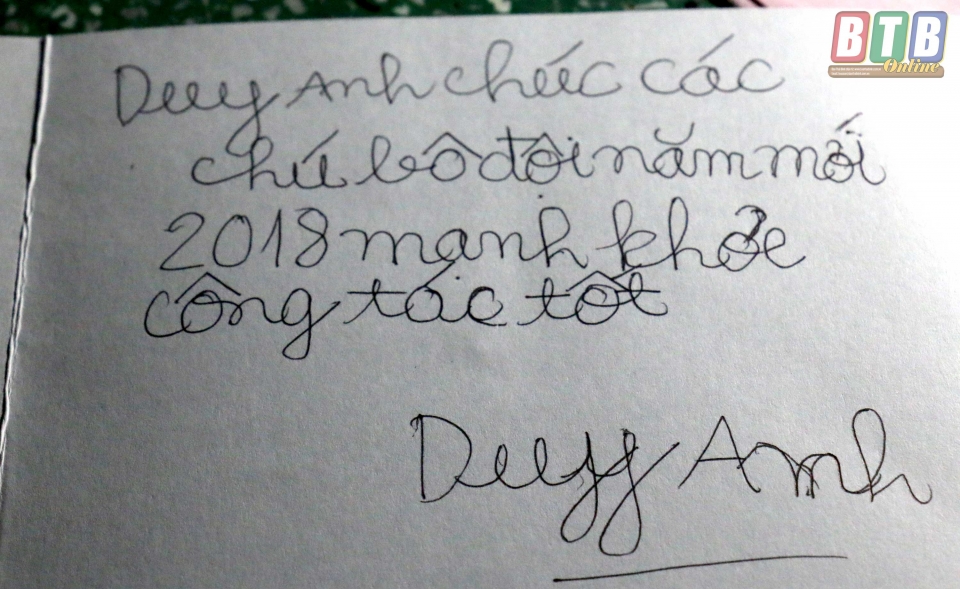 BTB
Online
Duy Anh chúc các
chú bô đội năm mới
2018 mạnh khỏe
công tác tốt
Duyy Anh